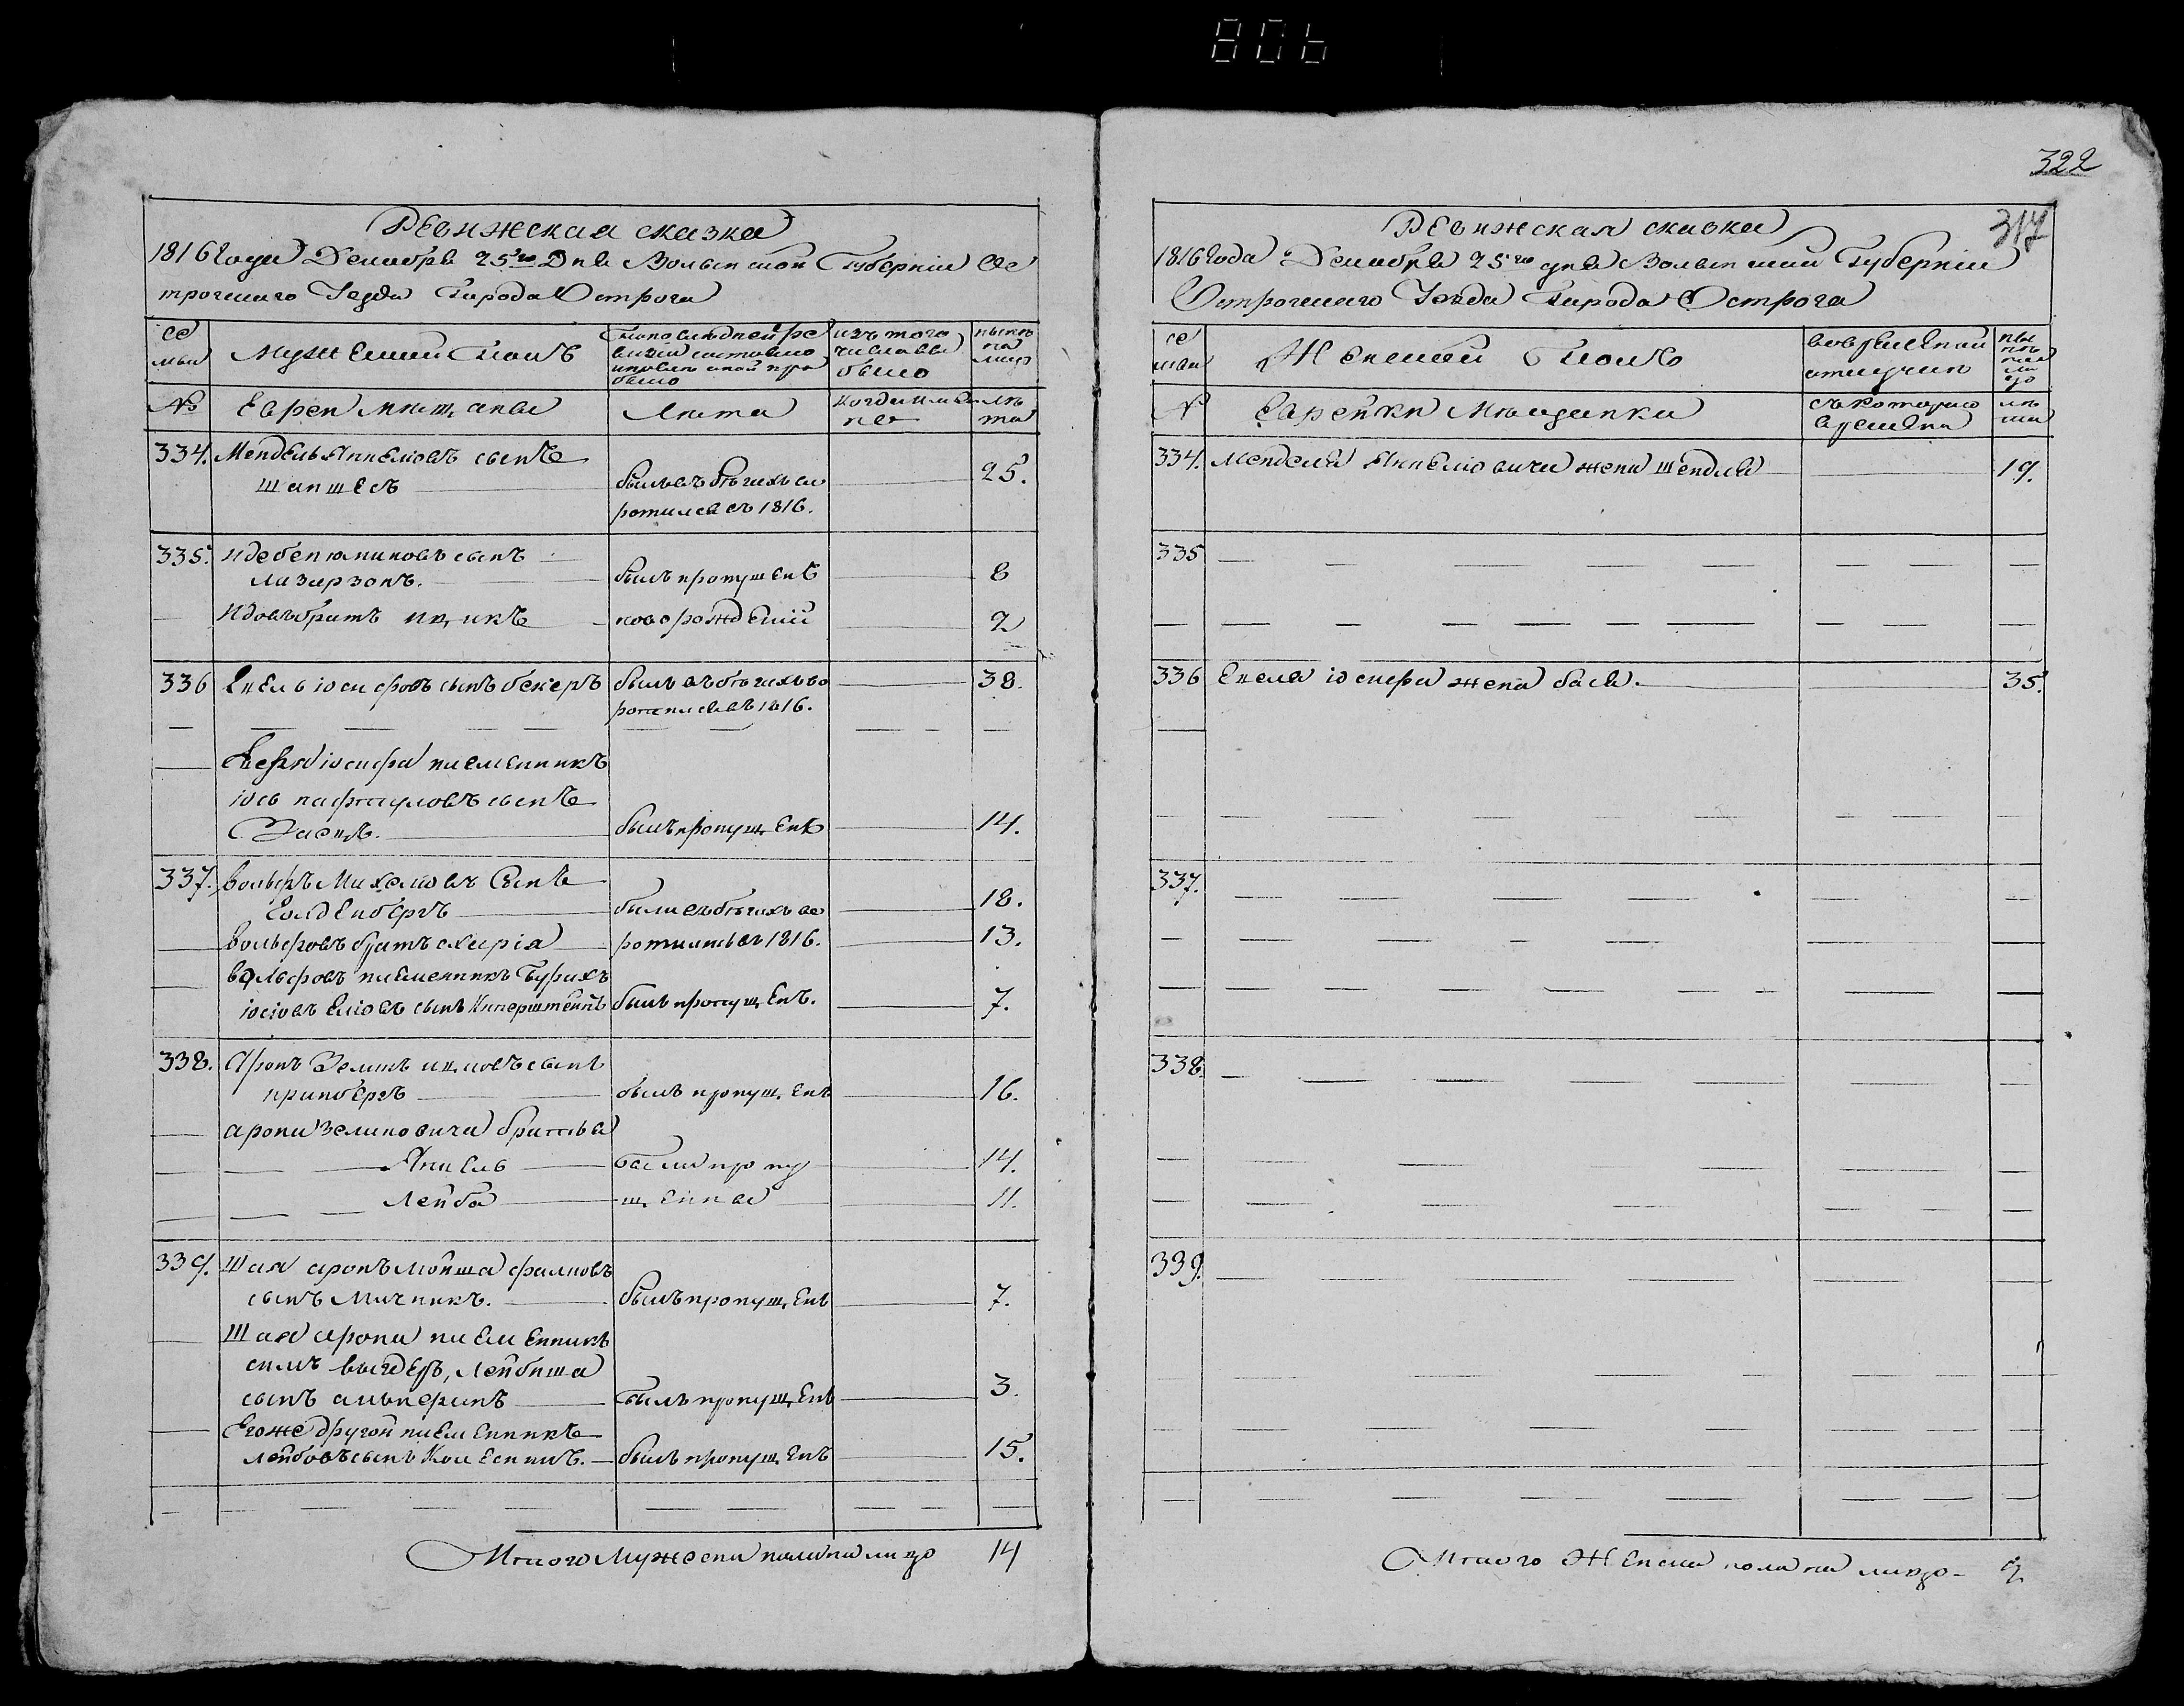 806
Ревижская сказка
1816 года Декабря 25го Дня Волынской Губернiи Ос
трогскаго Уезда Города Острога
Се
мьи
Мужеский Полъ
По последней ре
визiи состояло
и после оной при
было
изъ того
числа вы
было
ныне
на
лицо
№
Евреи мищане
Лета
когда имян
но
ле
та
334. Мендель Анкелювъ сынъ
Шапшесъ
былъ въ бегахъ во
ротился въ 1816.
25.
335. Идебенюминовъ сынъ
Лизарзонъ.
былъ пропущенъ
8
Идовъ братъ Ицикъ
новорожденiй
2
336 Екель iосифовъ сынъ бекеръ
былъ въ бегахъ во
ротился въ 1816.
38.
iосифа племенникъ
iось нафтуловъ сынъ
Засицъ.
былъ пропущенъ
14.
337. Вольфъ Михелювъ Сынъ
Голденбергъ
были въ бегахъ во
18.
Вольфовъ братъ схарiа
ротились въ 1816.
13.
Вольфовъ племенникъ Бурихъ
iосiовъ Елiовъ сынъ Киперштейнъ
былъ пропущенъ.
7.
338. Аронъ Зеликъ ицковъ сынъ
принбергъ
былъ пропущенъ
16.
арона Зеликовича братья
Анкель
были пропу
14.
Лейба
щенные
11.
339. Шая аронъ Мойша фалковъ
сынъ Мичникъ.
былъ пропущенъ
7.
Шая арона племенникъ
сынъ альперинъ
былъ пропущенъ
3.
Егоже другой племенникъ
лейбовъ сынъ Колесникъ.
былъ пропущенъ
15.
Итого Мужеска пола на лицо
14
322
317
Ревижская сказка
1816 Года Декабря 25го дня Волынский Губернiи
Острогскаго Уезда Города Острога
Се
мьи
Женский Полъ
во временной
отлучке
ны
не
на
ли
цо
№
Еврейки Мещанки
съ котораго
времени
ле
та
334. Менделя Анкелiовича жена Шендля
19.
335
336 Екеля iосифа жена бася.
35.
337.
338.
339.
Итого Женска пола на лицо-
2